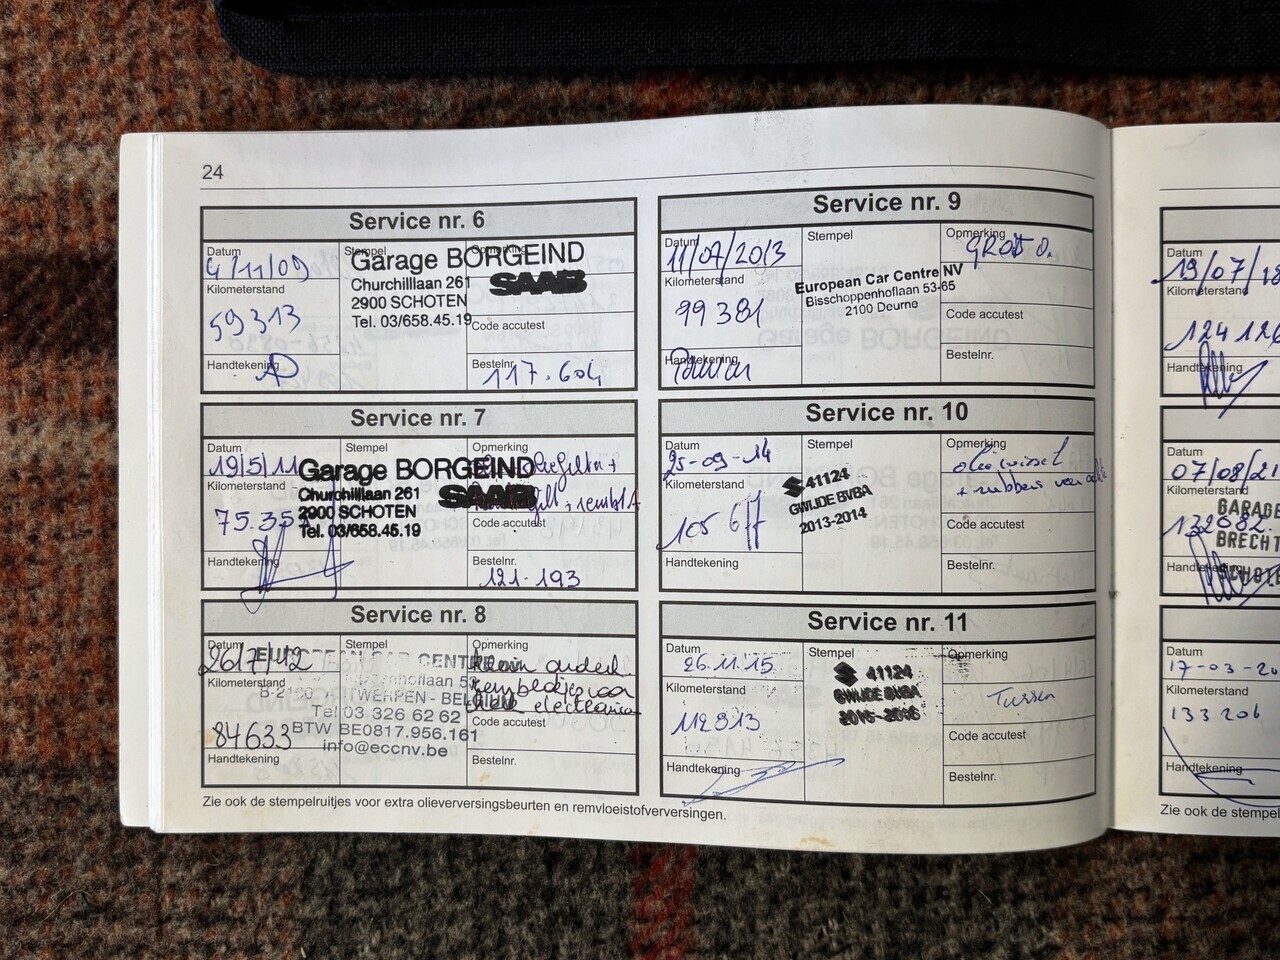 24
Service nr. 6
Datum
4/11/09
Kilometerstand
59313
Handtekening
Stempel
Garage BORGEIND
Churchilllaan 261 SAAB
2900 SCHOTEN
Tel. 03/658.45.19
Opmerking
Code accutest
Bestelnr.
117.604
Service nr. 7
Datum
19/5/11
Kilometerstand
75.35
Handtekening
Stempel
Garage BORGEIND
Churchilllaan 261 SAAB
2900 SCHOTEN
Tel. 03/658.45.19
Opmerking
Code accutest
Bestelnr.
121-193
Service nr. 8
Datum
26/7/12
Kilometerstand
84633
Handtekening
Stempel
EUROPEAN CAR CENTRE
ANTWERPEN - BELGIUM
Tel 03 326 62 62
BTW BE0817.956.161
info@eccnv.be
Opmerking
klein onderh.
remblokjes voor
Code accutest
Bestelnr.
Zie ook de stempelruitjes voor extra olieverversingsbeurten en remvloeistofverversingen.
Service nr. 9
Datum
11/07/2013
Kilometerstand
99381
Handtekening
Stempel
European Car Centre NV
Bisschoppenhoflaan 53-65
2100 Deurne
Opmerking
GROOT O.
Code accutest
Bestelnr.
Service nr. 10
Datum
25-09-14
Kilometerstand
105 677
Handtekening
Stempel
41124
GWIJDE BVBA
2013-2014
Opmerking
oliewissel
+ rubbers van
Code accutest
Bestelnr.
Service nr. 11
Datum
26.11.15
Kilometerstand
112813
Handtekening
Stempel
41124
GWIJDE BVBA
2015-2016
Opmerking
Tussen
Code accutest
Bestelnr.
Datum
19/07/18
Kilometerstand
124 126
Handtekening
Datum
07/08/21
Kilometerstand
132082
GARAGE
BRECHT
SCHOTE
Handtekening
Datum
17-03-20
Kilometerstand
133 206
Handtekening
Zie ook de stempel